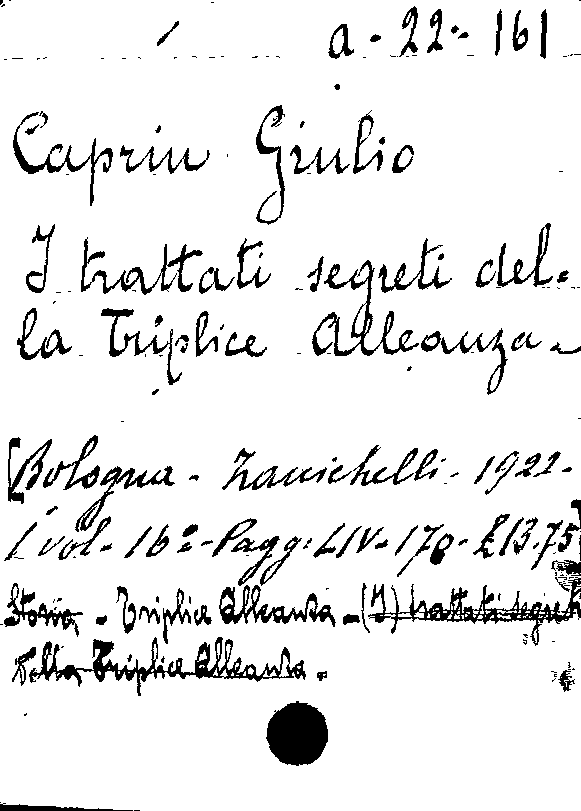 a - 22 - 161
Caprin Giulio
I trattati segreti del-
la Triplice Alleanza -
[Bologna - Zanichelli - 1922 -
1 vol - 16º - Pagg: LIV - 170 - £ 13.75]
Storia - Triplice Alleanza - (I) trattati segreti
della Triplice Alleanza -